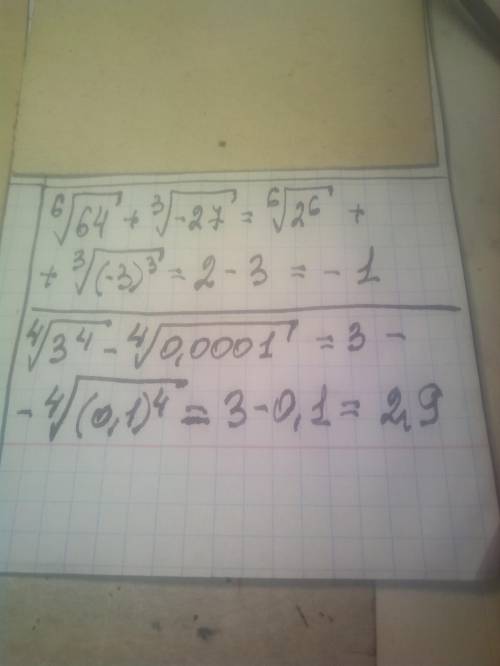 ⁶√64 + ³√-27 = ⁶√2⁶ +
+ ³√(-3)³ = 2 - 3 = - 1
⁴√3⁴ - ⁴√0,0001 = 3 -
- ⁴√(0,1)⁴ = 3 - 0,1 = 2,9